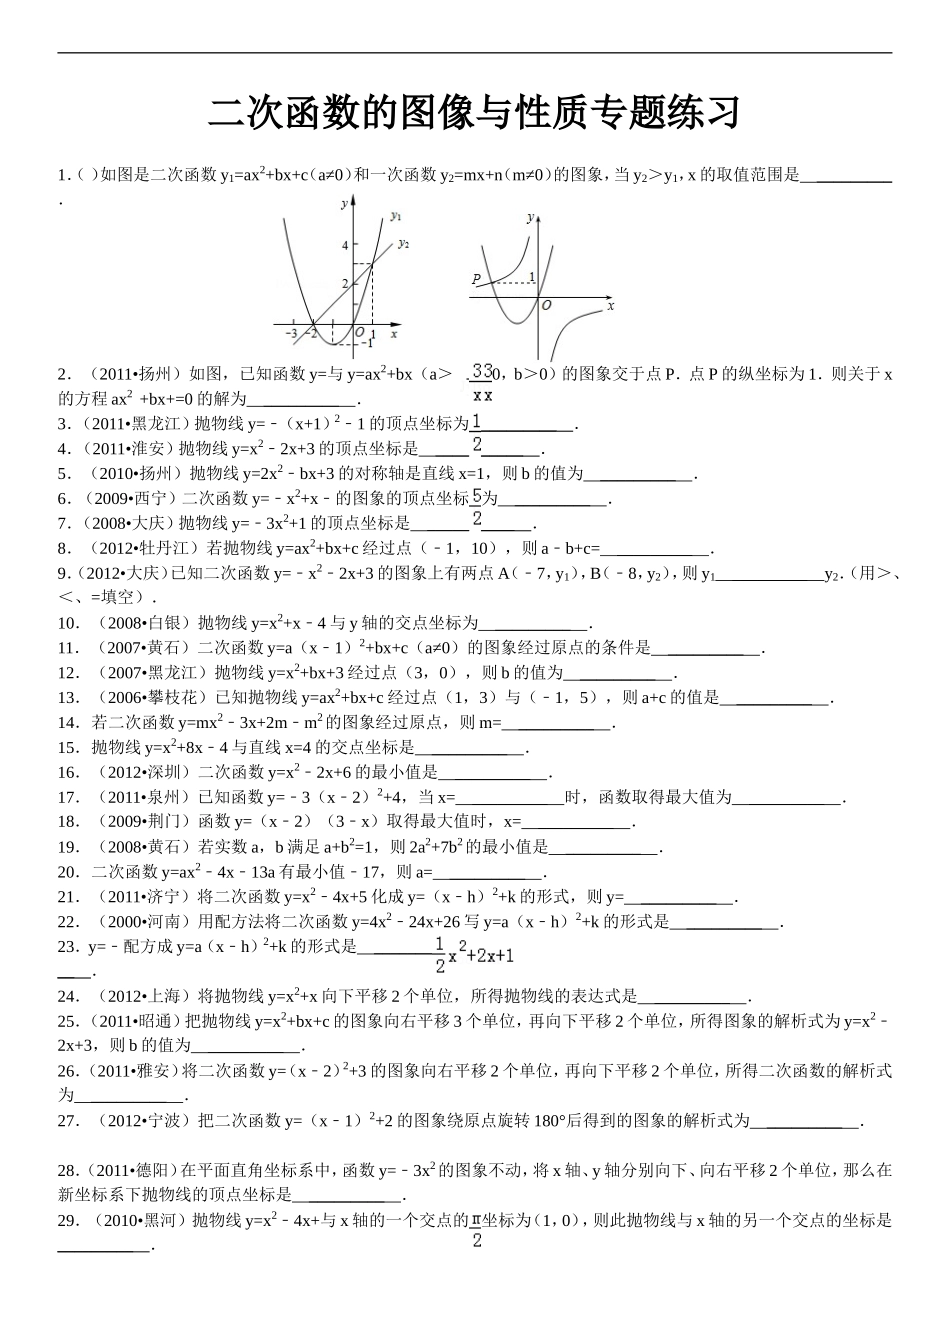 二次函数的图像与性质专题练习
1.（ ）如图是二次函数 y₁=ax²+bx+c（a≠0）和一次函数 y₂=mx+n（m≠0）的图象，当 y₂＞y₁，x 的取值范围是____________
．
y y₁ y₂ 4 2 -3 -2 O 1 x -1
y P 1 O x
2．（2011•扬州）如图，已知函数 y=与 y=ax²+bx（a＞ . 3 3 0，b＞0）的图象交于点 P．点 P 的纵坐标为 1．则关于 x
x x
的方程 ax² +bx+=0 的解为____________．
3．（2011•黑龙江）抛物线 y=﹣（x+1）²﹣1 的顶点坐标为 1 ____________．
4．（2011•淮安）抛物线 y=x²﹣2x+3 的顶点坐标是______ 2 ______．
5．（2010•扬州）抛物线 y=2x²﹣bx+3 的对称轴是直线 x=1，则 b 的值为____________．
6．（2009•西宁）二次函数 y=﹣x²+x﹣的图象的顶点坐标 5 为____________．
7．（2008•大庆）抛物线 y=﹣3x²+1 的顶点坐标是______ 2 ______．
8．（2012•牡丹江）若抛物线 y=ax²+bx+c 经过点（﹣1，10），则 a﹣b+c=____________．
9．（2012•大庆）已知二次函数 y=﹣x²﹣2x+3 的图象上有两点 A（﹣7，y₁），B（﹣8，y₂），则 y₁____________y₂．（用＞、
＜、=填空）．
10．（2008•白银）抛物线 y=x²+x﹣4 与 y 轴的交点坐标为____________．
11．（2007•黄石）二次函数 y=a（x﹣1）²+bx+c（a≠0）的图象经过原点的条件是____________．
12．（2007•黑龙江）抛物线 y=x²+bx+3 经过点（3，0），则 b 的值为____________．
13．（2006•攀枝花）已知抛物线 y=ax²+bx+c 经过点（1，3）与（﹣1，5），则 a+c 的值是____________．
14．若二次函数 y=mx²﹣3x+2m﹣m²的图象经过原点，则 m=____________．
15．抛物线 y=x²+8x﹣4 与直线 x=4 的交点坐标是____________．
16．（2012•深圳）二次函数 y=x²﹣2x+6 的最小值是____________．
17．（2011•泉州）已知函数 y=﹣3（x﹣2）²+4，当 x=____________时，函数取得最大值为____________．
18．（2009•荆门）函数 y=（x﹣2）（3﹣x）取得最大值时，x=____________．
19．（2008•黄石）若实数 a，b 满足 a+b²=1，则 2a²+7b²的最小值是____________．
20．二次函数 y=ax²﹣4x﹣13a 有最小值﹣17，则 a=____________．
21．（2011•济宁）将二次函数 y=x²﹣4x+5 化成 y=（x﹣h）²+k 的形式，则 y=____________．
22．（2000•河南）用配方法将二次函数 y=4x²﹣24x+26 写 y=a（x﹣h）²+k 的形式是____________．
23．y=﹣配方成 y=a（x﹣h）²+k 的形式是________ 1/2 x²+2x+1
____．
24．（2012•上海）将抛物线 y=x²+x 向下平移 2 个单位，所得抛物线的表达式是____________．
25．（2011•昭通）把抛物线 y=x²+bx+c 的图象向右平移 3 个单位，再向下平移 2 个单位，所得图象的解析式为 y=x²﹣
2x+3，则 b 的值为____________．
26．（2011•雅安）将二次函数 y=（x﹣2）²+3 的图象向右平移 2 个单位，再向下平移 2 个单位，所得二次函数的解析式
为____________．
27．（2012•宁波）把二次函数 y=（x﹣1）²+2 的图象绕原点旋转 180°后得到的图象的解析式为____________．
28．（2011•德阳）在平面直角坐标系中，函数 y=﹣3x²的图象不动，将 x 轴、y 轴分别向下、向右平移 2 个单位，那么在
新坐标系下抛物线的顶点坐标是____________．
29．（2010•黑河）抛物线 y=x²﹣4x+与 x 轴的一个交点的 π/2 坐标为（1，0），则此抛物线与 x 轴的另一个交点的坐标是
____________．